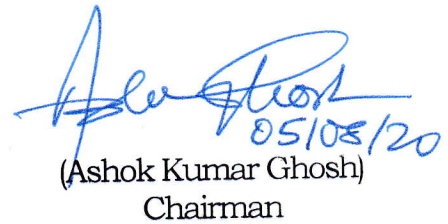 Ashok Ghosh
05/08/20
(Ashok Kumar Ghosh)
Chairman